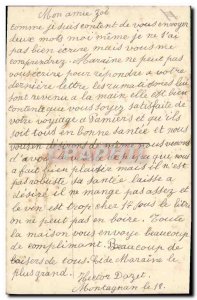 Mon amie Zoé
comme je suis content de vous envoyer
deux mots moi même je ne s'ai
pas bien écrire mais vous me
comprendrez. Maraine ne peut pas
vous écrire pour répondre a votre
dernière lettre les rumatis dous lui
sont revenue a la main elle est bien
contente que vous soyez satisfaite de
votre voyage a Pamiers et qu'ils
soit tous en bonne santée et nous
de même nous avons
d'avoir
a fait bien plaisir mais il n'est
pas robuste sa santée laisse a
désire il ne mange pas assez et
le vin est trop cher 14 sous le litre
on ne peut pas en boire. Toute
la maison vous envoye beaucoup
de compliment Beaucoup de
baisers de tous. de Maraine le
plus grand.
Victor Dozet.
Montagnan le 18.